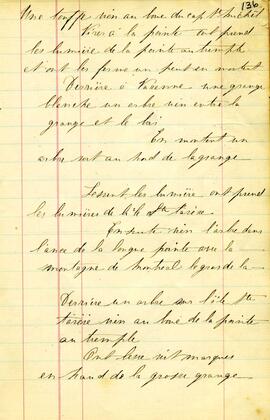 136
Une touffe vien au boue du cap St michèl
Virer à la pointe ont prend
les lumière de la pointe au tremple
et ont les ferme un peut en montant
Derrière à Varenne une grange
blanche un arbre vien entre la
grange et le bâ
En montent un
arbre vit au haud de la grange
Lesent les lumière ont prend
les lumières de l'ile Ste tarèse
Ensuite vien l'arbre dans
l'ance de la longue pointe avec la
montagne de montreal le gros de la
Derriere un arbre sur l'ile Ste
tarèse vien au boue de la pointe
au tremple
Ont lesse vit marques
en haud de la grosse grange